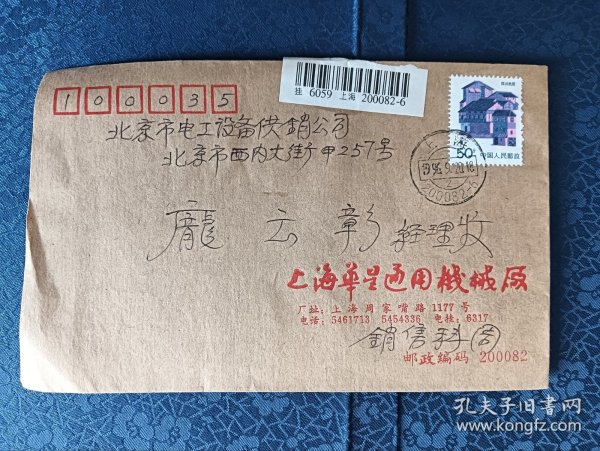 挂 6059 上海 200082-6
50分 中国人民邮政
100035
北京市电工设备供銷公司
北京市西内大街甲257号
200082-6
龐云彰 经理收
上海華星通用機械廠
厂址:上海周家嘴路1177号
电话:5461713 5454336 电挂:6317
銷售科
邮政编码 200082
孔夫子旧书网
www.kongfz.com